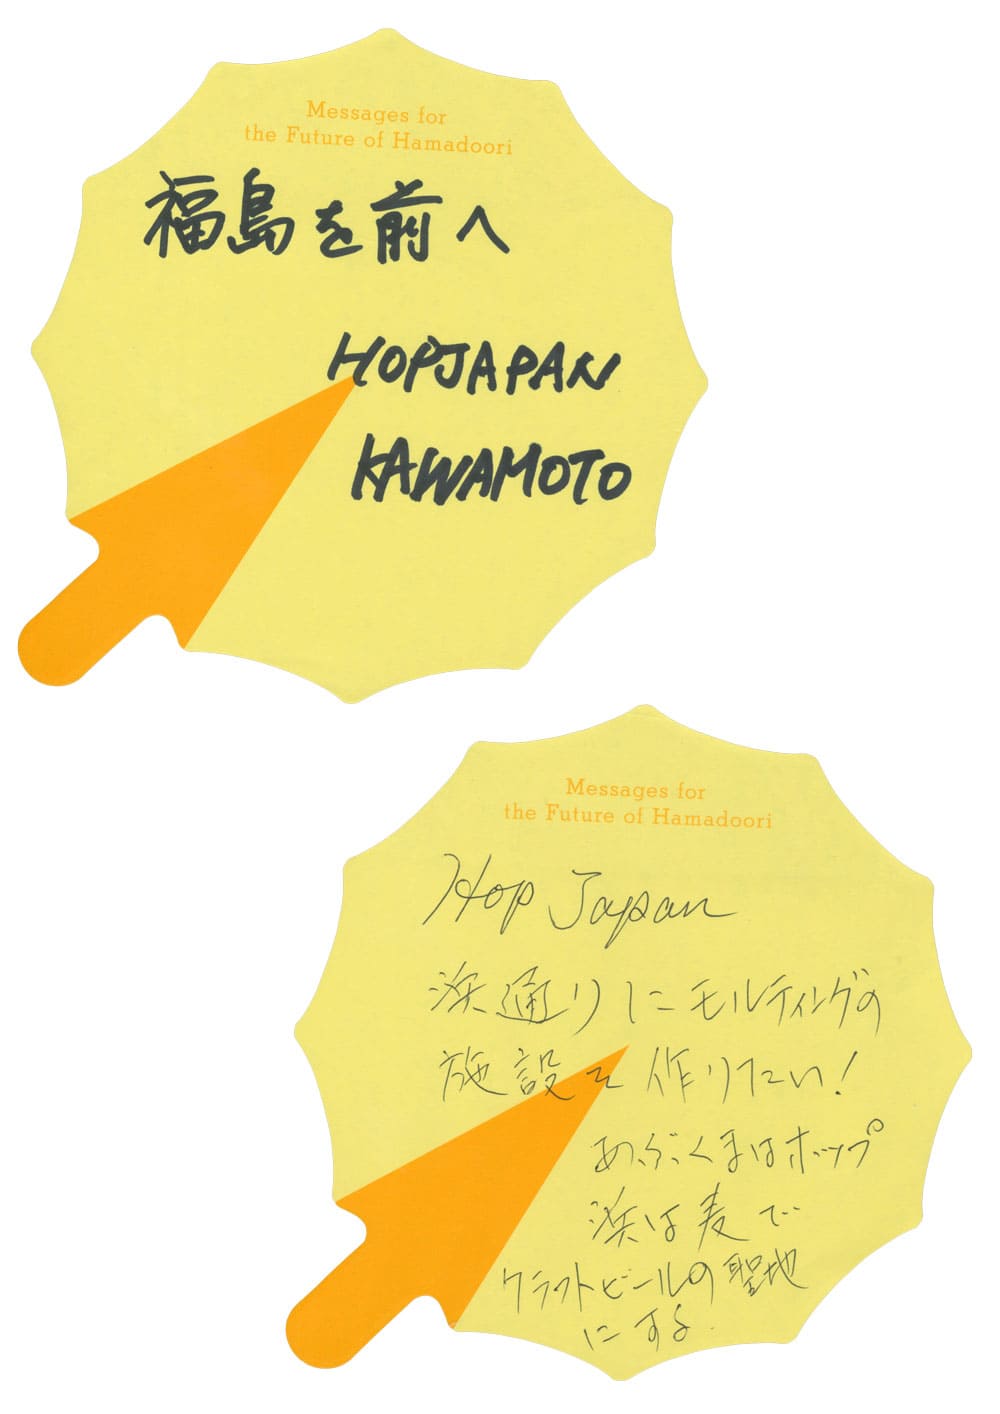 Messages for
the Future of Hamadoori
福島を前へ
HOPJAPAN
KAWAMOTO
Messages for
the Future of Hamadoori
Hop Japan
浜通りにモルティングの
施設を作りたい!
あぶくまはホップ
浜は麦で
クラフトビールの聖地
にする.